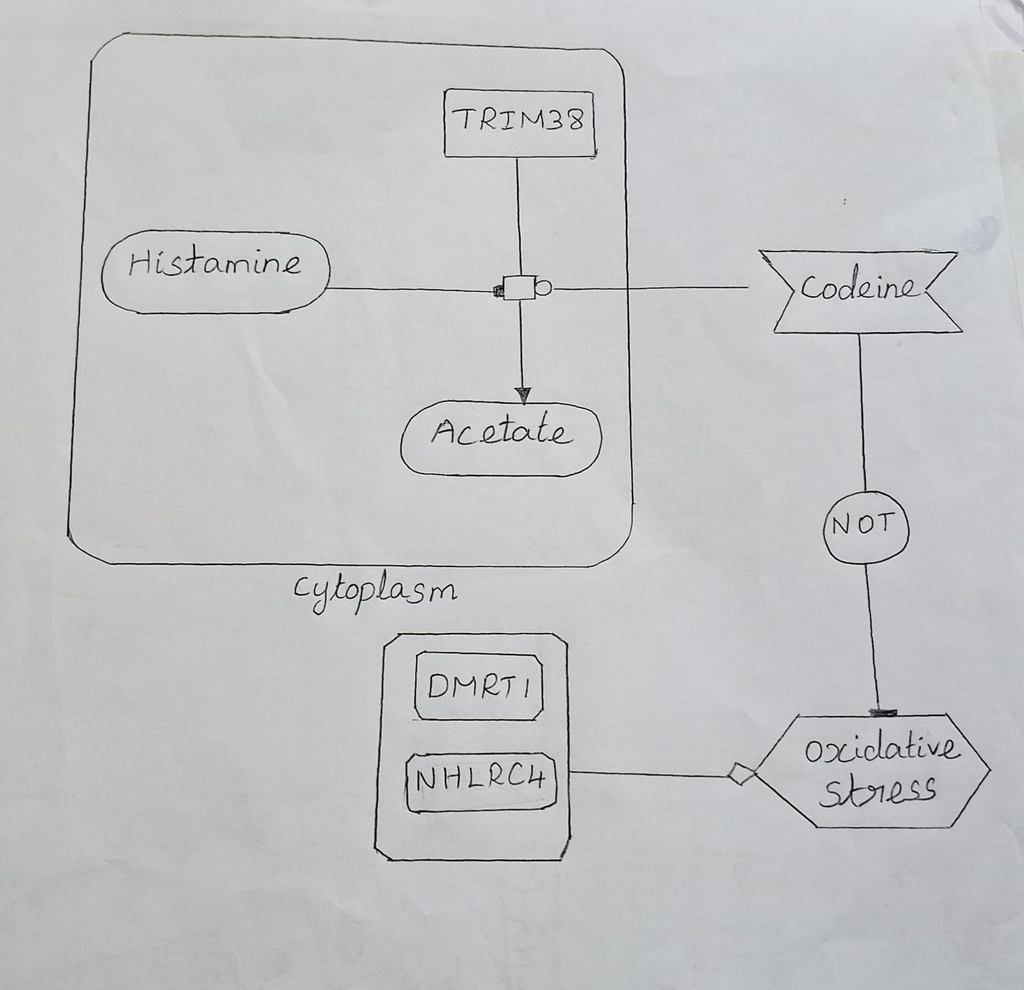 TRIM38
Histamine
Codeine
Acetate
NOT
Cytoplasm
DMRT1
NHLRC4
Oxidative
stress